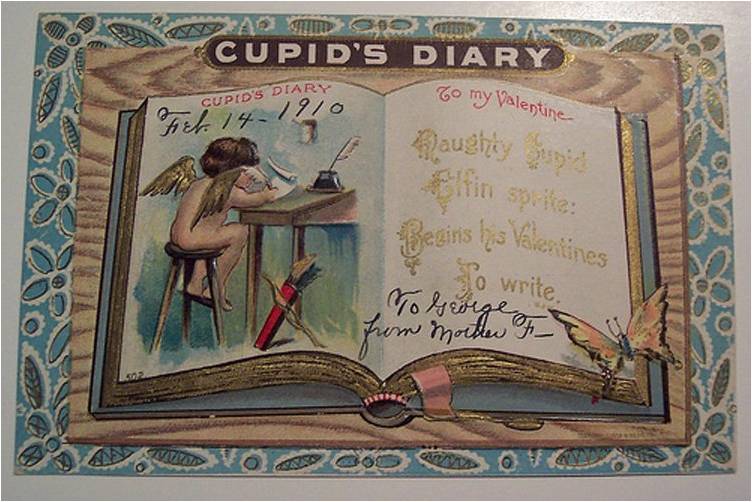 CUPID'S DIARY
CUPID'S DIARY
Feb. 14 - 1910
To my Valentine
Naughty Cupid
Elfin sprite:
Begins his Valentines
To write.
To George
from Mother F—
502